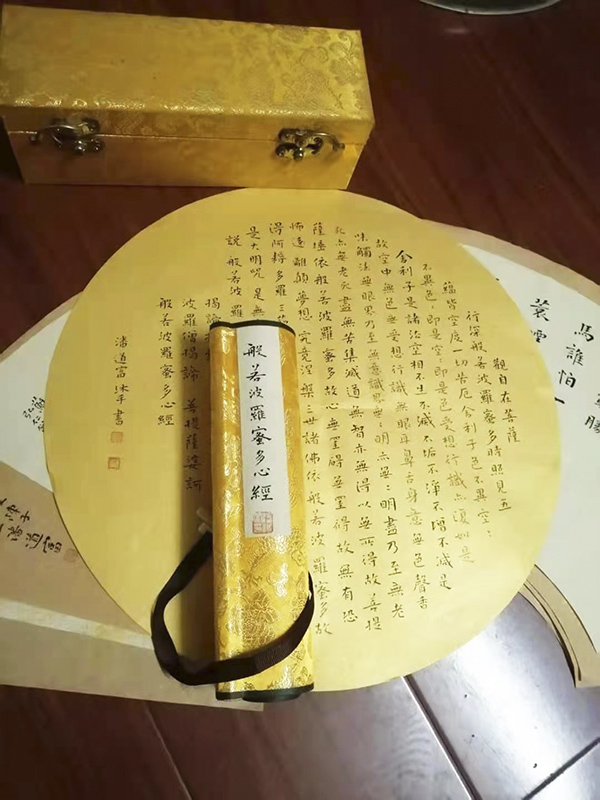 觀自在菩薩
行深般若波羅蜜多時照見五
蘊皆空度一切苦厄舍利子色不異空:
不異色:即是空:即是色受想行識亦復如是
舍利子是諸法空相不生不滅不垢不淨不增不減是
故空中無色無受想行識無眼耳鼻舌身意無色聲香
味觸法無眼界乃至無意識界無:明亦無:明盡乃至無老
死亦無老死盡無苦集滅道無智亦無得以無所得故菩提
薩埵依般若波羅蜜多故心無罣礙無罣礙故無有恐
怖遠離顛夢想究竟涅槃三世諸佛依般若波羅蜜多故
得阿耨多羅三
是大明咒是無
說般若波羅
揭諦
波羅僧揭諦 菩提薩婆訶
般若波羅蜜多心經
潘道富沐手書
般若波羅蜜多心經
勝
馬誰怕一
蓑煙
潘道富